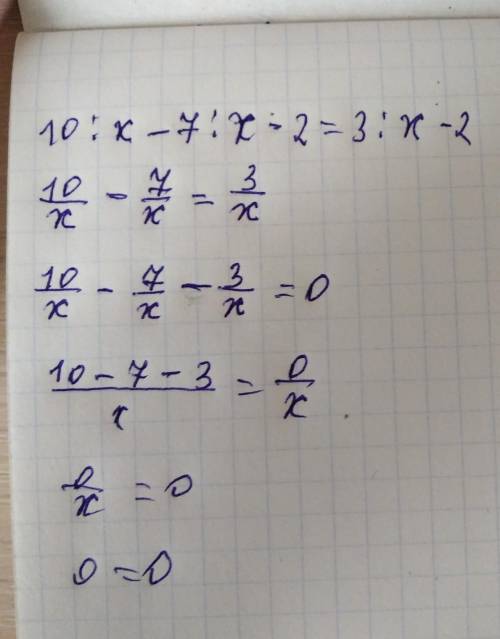 10 : x - 7 : x - 2 = 3 : x - 2
10/x - 7/x = 3/x
10/x - 7/x - 3/x = 0
(10 - 7 - 3)/x = 0/x
0/x = 0
0 = 0